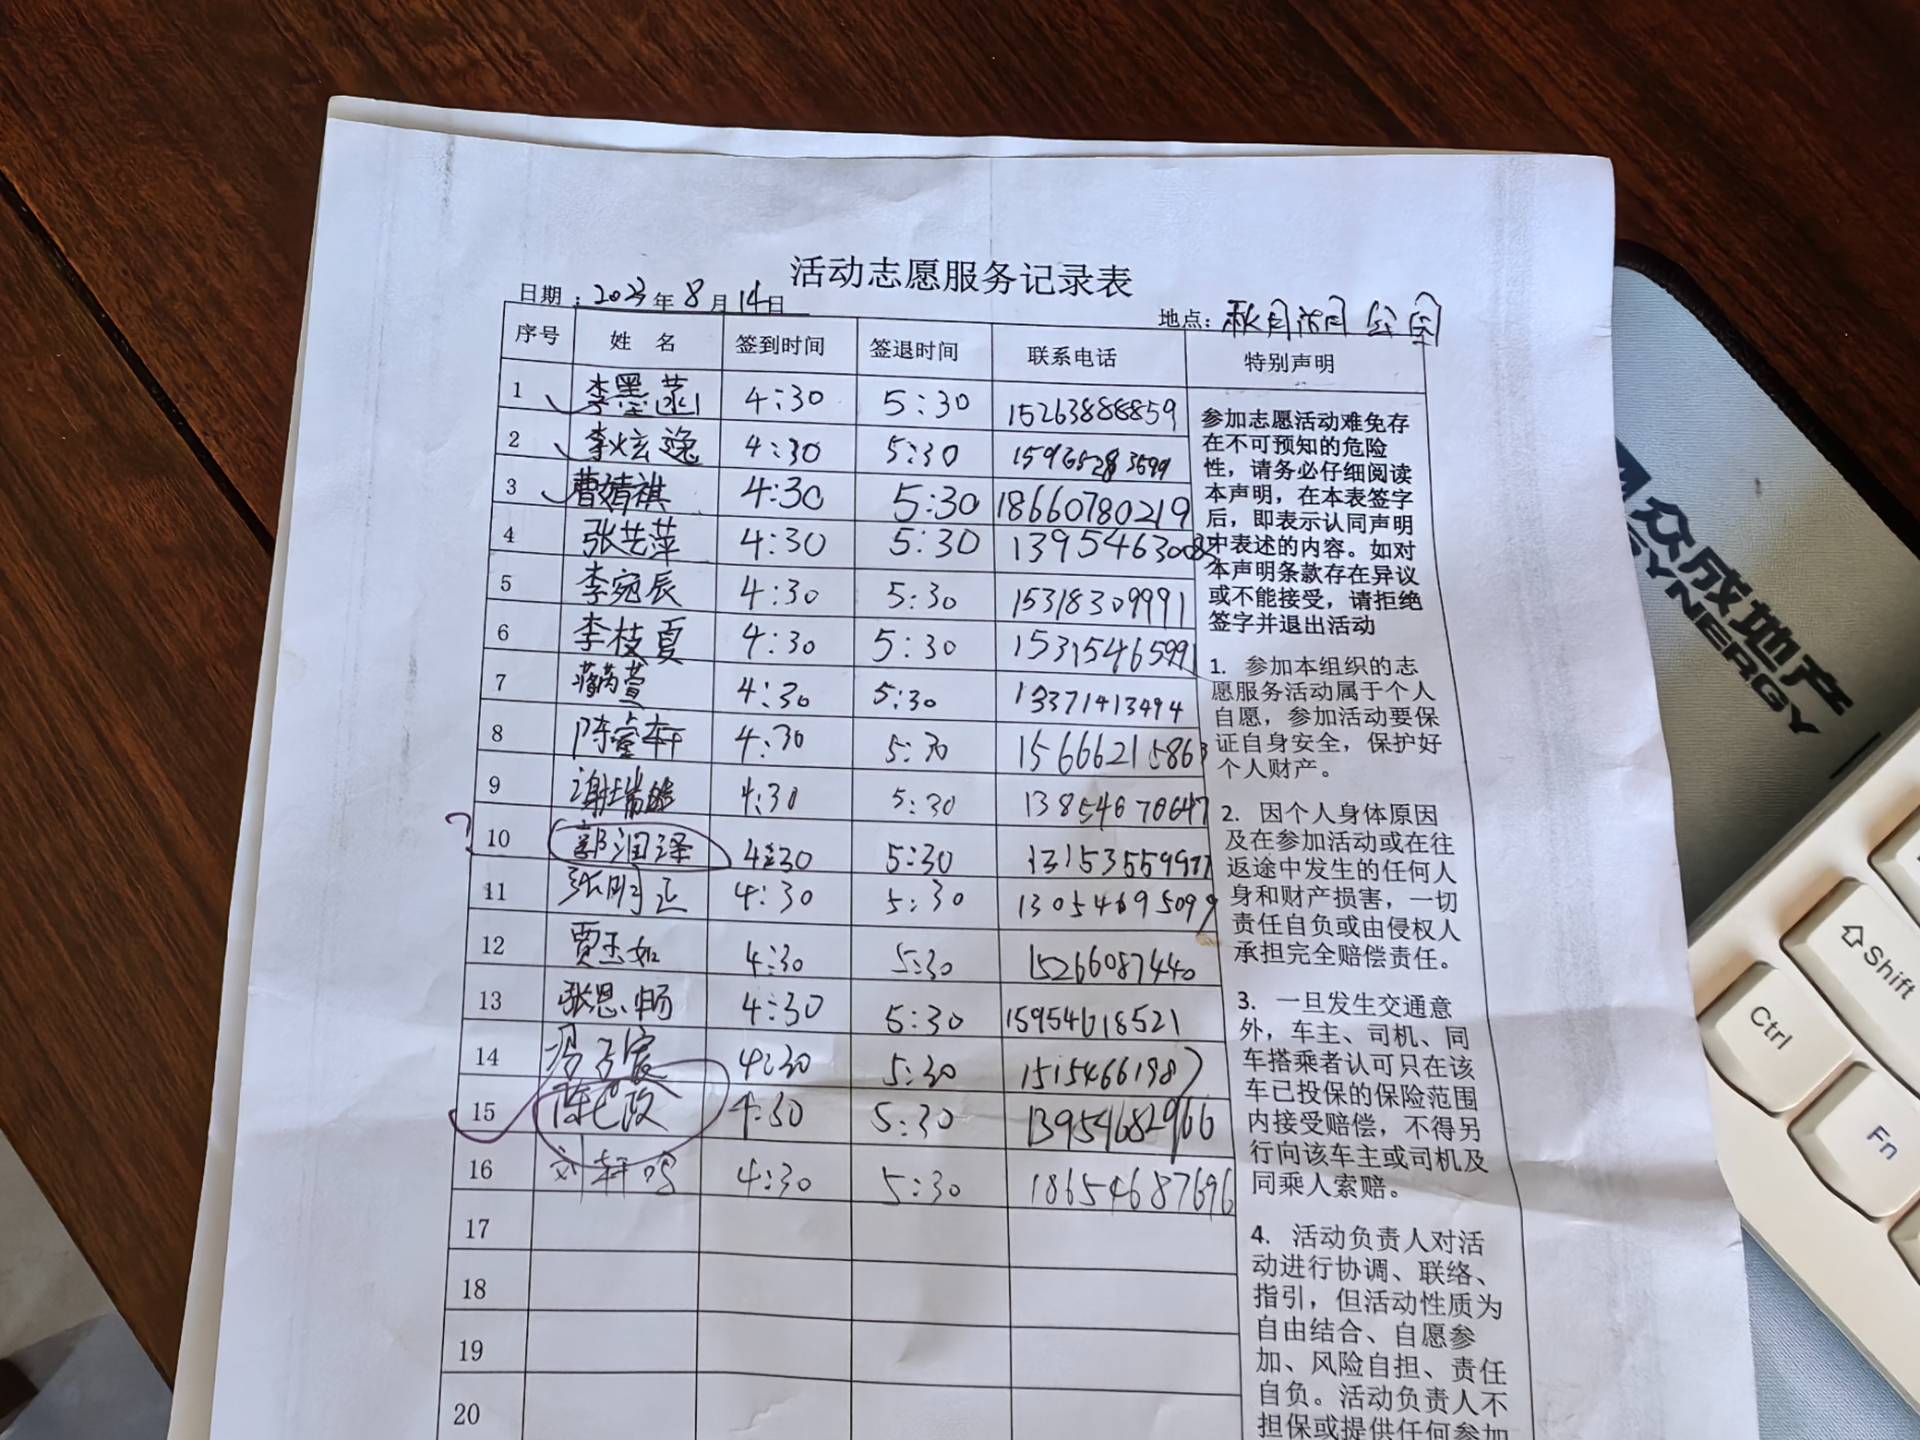 活动志愿服务记录表
日期：2023年8月14日
地点：秋月湖公园
序号 姓 名 签到时间 签退时间 联系电话 特别声明
1 李墨菡 4:30 5:30 15263888859
2 李炫逸 4:30 5:30
3 曹婧祺 4:30 5:30 18660780219
4 张芸萍 4:30 5:30
5 李宛辰 4:30 5:30 15318309991
6 李枝夏 4:30 5:30 15315465991
7 蒋芮萱 4:30 5:30 13371413494
8 陈 轩 4:30 5:30 15666215863
9 谢瑞 4:30 5:30 13854670647
10 郭润泽 4:30 5:30 13153559977
11 张明正 4:30 5:30 13054695099
12 贾玉如 4:30 5:30 15266087440
13 张恩畅 4:30 5:30 15954618521
14 4:30 5:30 15154661987
15 陈 4:30 5:30 13954682966
16 刘轩鸣 4:30 5:30 18654687696
17
18
19
20
参加志愿活动难免存
在不可预知的危险
性，请务必仔细阅读
本声明，在本表签字
后，即表示认同声明
中表述的内容。如对
本声明条款存在异议
或不能接受，请拒绝
签字并退出活动
1. 参加本组织的志
愿服务活动属于个人
自愿，参加活动要保
证自身安全，保护好
个人财产。
2. 因个人身体原因
及在参加活动或在往
返途中发生的任何人
身和财产损害，一切
责任自负或由侵权人
承担完全赔偿责任。
3. 一旦发生交通意
外，车主、司机、同
车搭乘者认可只在该
车已投保的保险范围
内接受赔偿，不得另
行向该车主或司机及
同乘人索赔。
4. 活动负责人对活
动进行协调、联络、
指引，但活动性质为
自由结合、自愿参
加、风险自担、责任
自负。活动负责人不
担保或提供任何参加
众成地产
SYNERGY
Shift
Ctrl
Fn